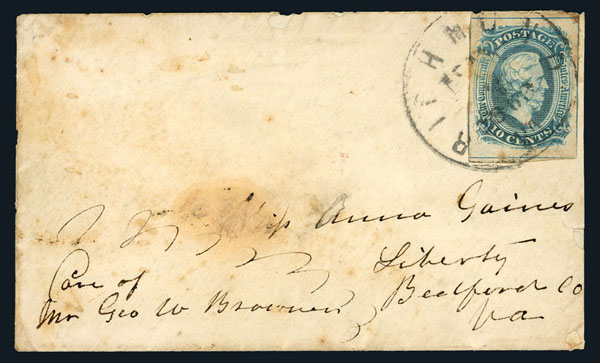 RICHMOND
POSTAGE
The Confederate States of America
10 CENTS
Miss Anna Gaines
Liberty
Care of
Mr Geo W Brownen Bedford Co
Va